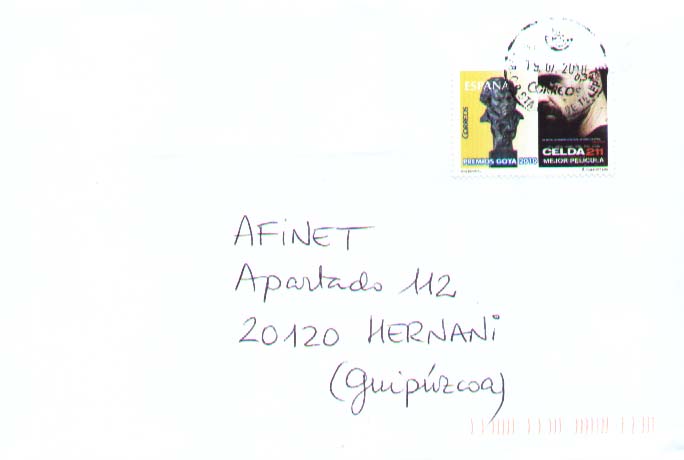 19.07.2010
CORREOS
ESPAÑA
CORREOS
PREMIOS GOYA 2010
CELDA 211
MEJOR PELÍCULA
AFiNET
Apartado 112
20120 HERNANi
(Guipúzcoa)